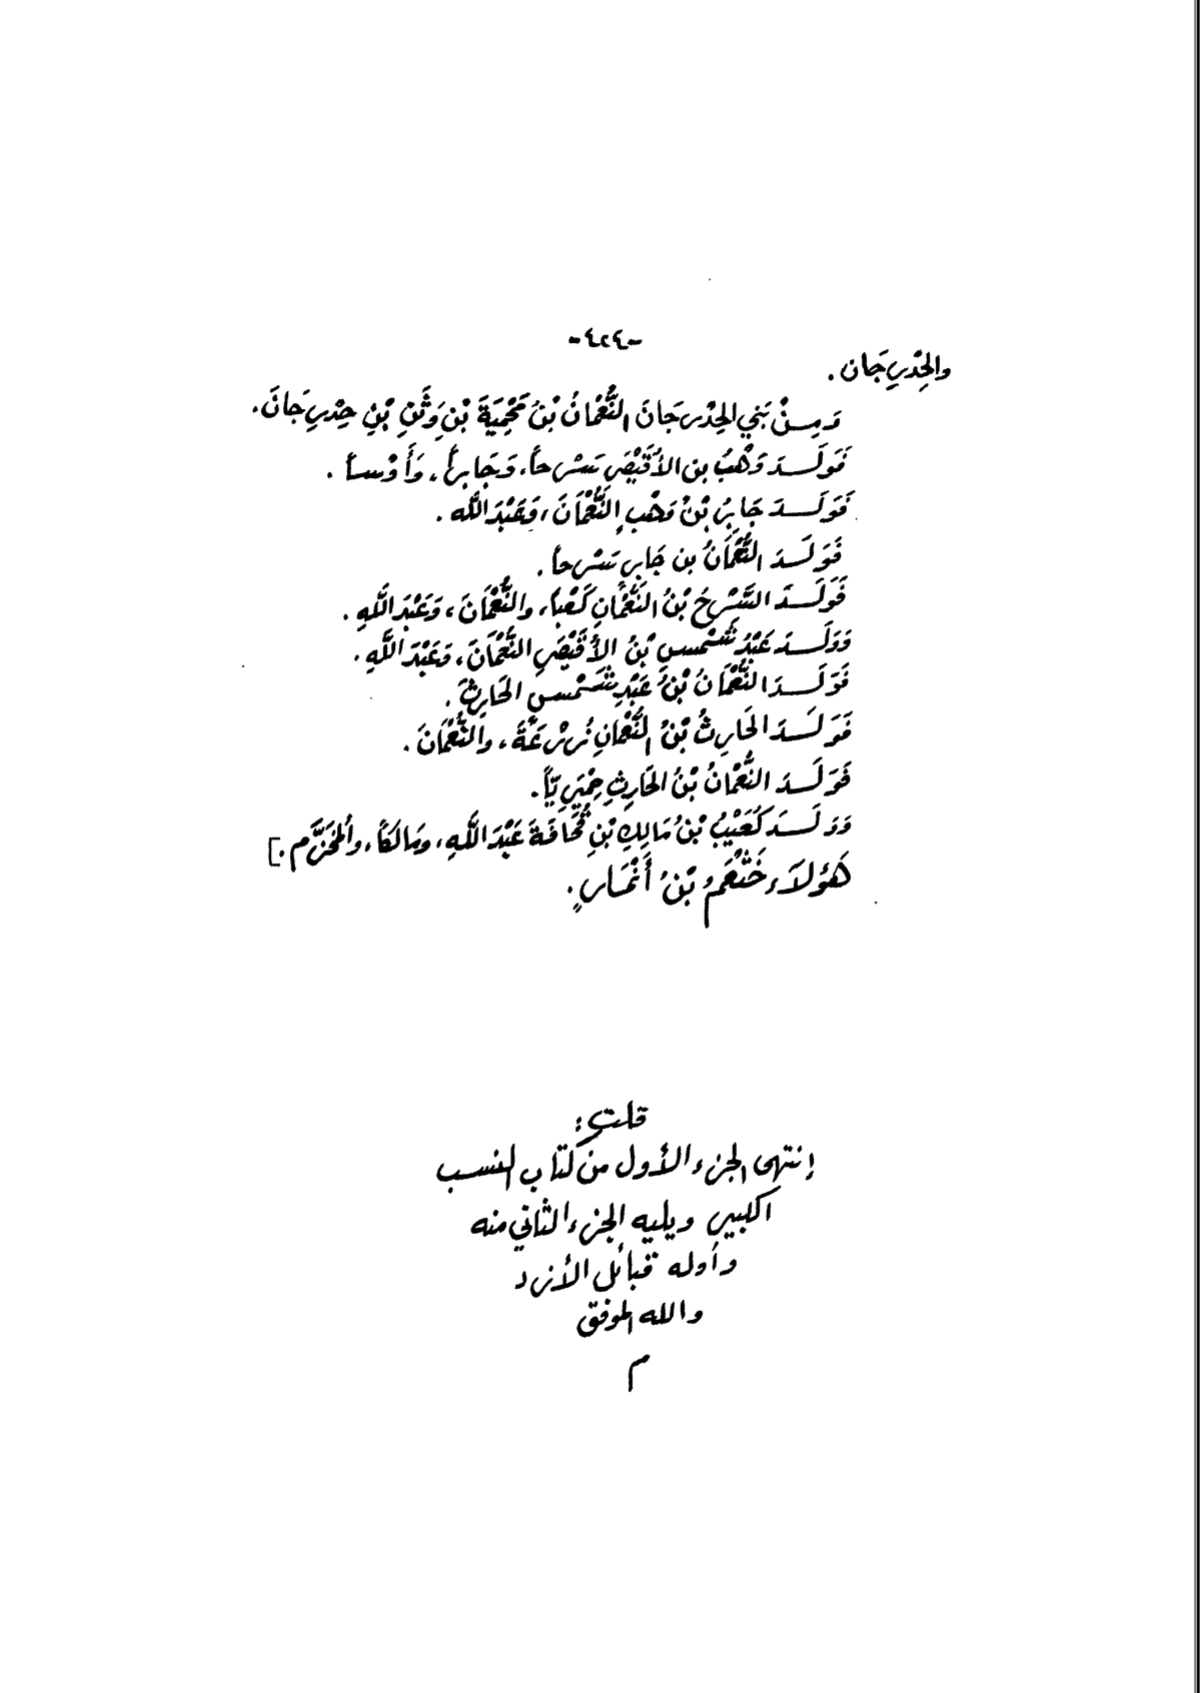 -٤٢٤-
والحِدْرِجَان .
وَمِنْ بَنِي الحِدْرِجَانَ النُّعْمَانُ بْنُ مَحْمِيَةَ بْنِ وَثَنِ بْنِ حِدْرِجَانَ.
فَوَلَــدَ وَهْبُ بن الأُقَيْصِرِ سَرْحاً، وَجَابِراً، وَأَوْساً .
فَوَلَــدَ جَابِرُ بْنُ وَهْبٍ النُّعْمَانَ، وَعَبْدَ اللَّه .
فَوَلَــدَ النُّعْمَانُ بن جَابِرٍ سَرْحاً .
فَوَلَــدَ السَّرْحُ بْنُ النُّعْمَانِ كَعْباً، والنُّعْمَانَ، وَعَبْدَ اللَّهِ .
وَوَلَــدَ عَبْدُ شَمْسِ بْنُ الأُقَيْصِرِ النُّعْمَانَ، وَعَبْدَ اللَّهِ .
فَوَلَــدَ النُّعْمَانُ بْنُ عَبْدِ شَمْسٍ الحَارِثَ .
فَوَلَــدَ الحَارِثُ بْنُ النُّعْمَانِ زُرْعَةَ، والنُّعْمَانَ .
فَوَلَــدَ النُّعْمَانُ بْنُ الحَارِثِ حِمْيَرِيّاً .
وَوَلَــدَ كُعَيْبُ بْنُ مَالِكِ بْنِ قُحَافَةَ عَبْدَ اللَّهِ، ومَالكاً، والمُخَزَّم .]
هَؤُلاَءِ خَثْعَمُ بْنُ أَنْمَارٍ .
قلت :
إنتهى الجزء الأول من كتاب النسب
الكبير ويليه الجزء الثاني منه
وأوله قبائل الأزد
والله الموفق
م